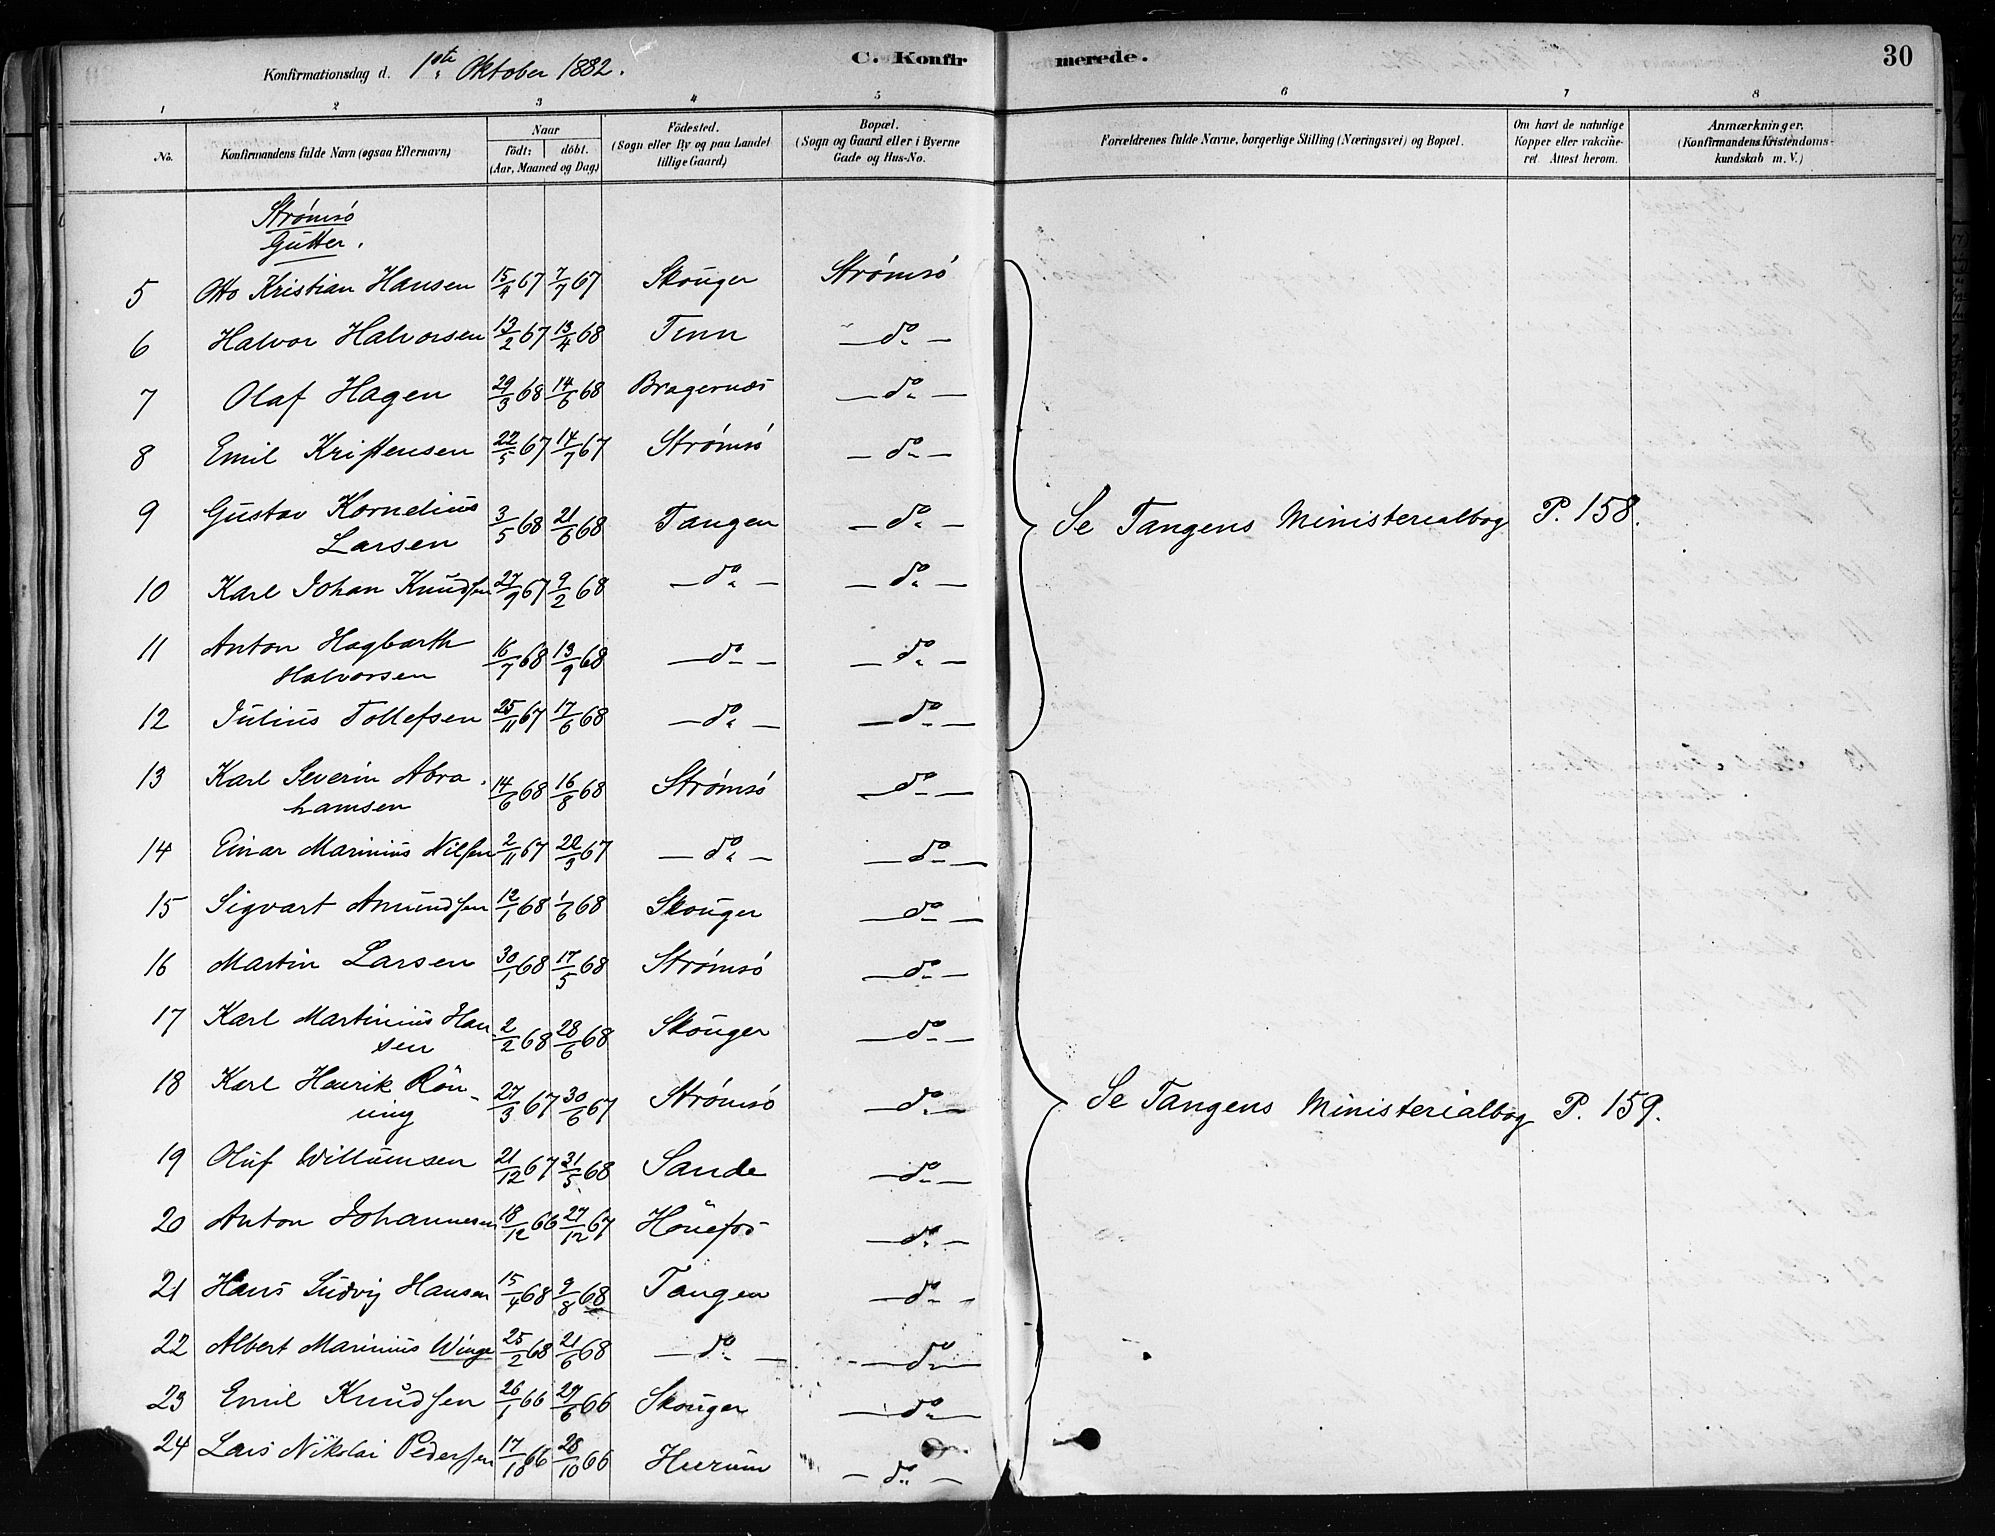 Konfirmationsdag d. 1ste Oktober 1882.
C. Konfirmerede.
30
1 2 3 4 5 6 7 8
No.
Konfirmandens fulde Navn (ogsaa Efternavn)
Naar
født: døbt.
(Aar, Maaned og Dag)
Fødested.
(Sogn eller By og paa Landet
tillige Gaard)
Bopæl.
(Sogn og Gaard eller i Byerne
Gade og Hus-No.
Forældrenes fulde Navne, borgerlige Stilling (Næringsvei) og Bopæl.
Om havt de naturlige
Kopper eller vakcine-
ret. Attest herom.
Anmærkninger.
(Konfirmandens Kristendoms-
kundskab m. V.)
Strømsø
Gutter.
5 Otto Kristian Hansen 15/4 67 7/7 67 Skouger Strømsø
6 Halvor Halvorsen 13/2 67 13/4 68 Tinn do
7 Olaf Hagen 29/3 68 14/6 68 Bragernæs do
8 Emil Kristensen 22/5 67 14/7 67 Strømsø do
9 Gustav Kornelius
Larsen 3/5 68 21/6 68 Tangen do
Se Tangens Ministerialbog P. 158.
10 Karl Johan Knudsen 27/9 67 9/2 68 do do
11 Anton Hagbarth
Halvorsen 16/7 68 13/9 68 do do
12 Julius Tollefsen 25/11 67 17/6 68 do do
13 Karl Severin Abra-
hamsen 14/6 68 16/8 68 Strømsø do
14 Einar Marinius Nilsen 2/11 67 22/3 67 do do
15 Sigvart Amundsen 12/1 68 1/6 68 Skouger do
16 Martin Larsen 30/1 68 17/5 68 Strømsø do
17 Karl Martinius Han-
sen 2/2 68 28/6 68 Skouger do
18 Karl Henrik Røn-
ning 27/3 67 30/6 67 Strømsø do
Se Tangens Ministerialbog P. 159.
19 Oluf Willumsen 21/12 67 31/5 68 Sande do
20 Anton Johannesen 18/12 66 27/12 67 Hønefos do
21 Hans Ludvig Hansen 15/4 68 9/8 68 Tangen do
22 Albert Marinius Winge 25/2 68 21/6 68 do do
23 Emil Knudsen 26/1 66 29/6 66 Skouger do
24 Lars Nikolai Pedersen 17/10 66 28/10 66 Hurum do